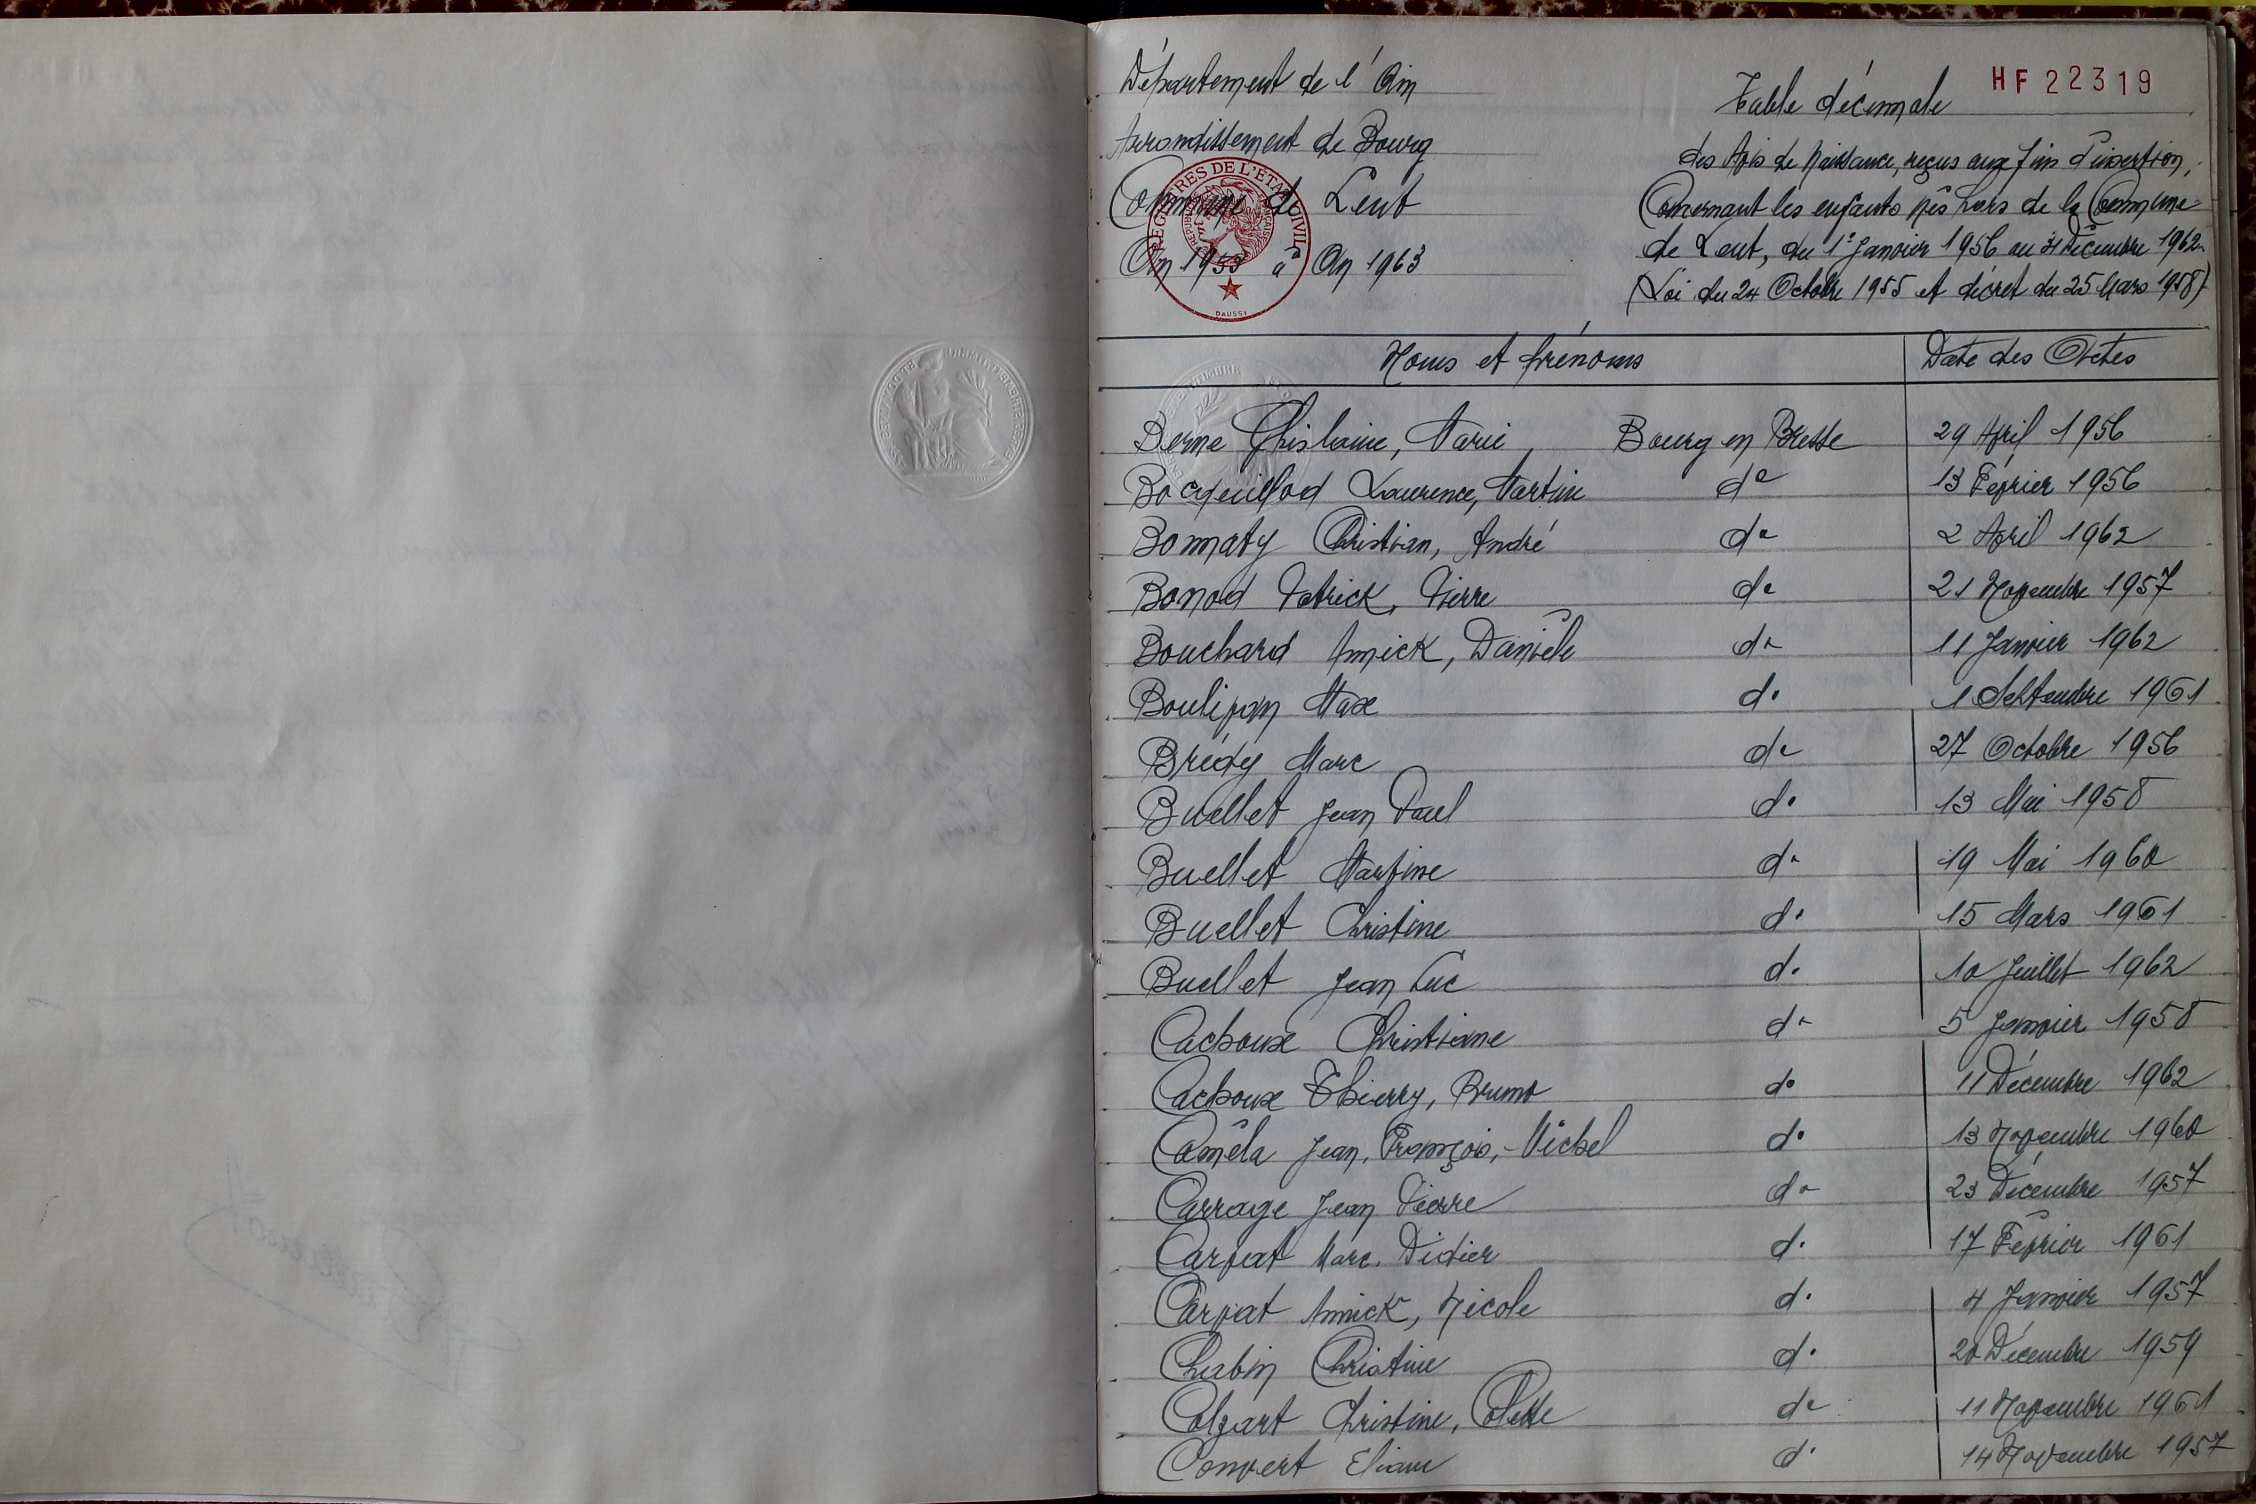 Département de l'Ain
Arrondissement de Bourg
Commune de Lent
An 1953 à An 1963
REGISTRES DE L'ETAT CIVIL
DAUSSY
HF 22319
Table décennale
des Avis de Naissance, reçus aux fins d'insertion,
Concernant les enfants nés hors de la Commune
de Lent, du 1er Janvier 1956 au 31 Décembre 1962
(Loi du 24 Octobre 1955 et décret du 25 Mars 1958)
Noms et prénoms Date des Actes
Berne Ghislaine, Marie Bourg en Bresse 29 Avril 1956
Bocquillod Laurence, Martine do 13 Février 1956
Bonnaty Christian, André do 2 Avril 1962
Bonod Patrick, Pierre do 21 Novembre 1957
Bouchard Annick, Danièle do 11 Janvier 1962
Boulivan Max do 1 Septembre 1961
Brédy Marc do 27 Octobre 1956
Buellet Jean Paul do 13 Mai 1958
Buellet Martine do 19 Mai 1960
Buellet Christine do 15 Mars 1961
Buellet Jean Luc do 10 Juillet 1962
Cachoux Christiane do 5 Janvier 1958
Cachoux Thierry, Bruno do 11 Décembre 1962
Caméla Jean, François, Michel do 13 Novembre 1960
Carrage Jean Pierre do 23 Décembre 1957
Carvat Marc. Didier do 17 Février 1961
Carvat Annick, Nicole do 4 Janvier 1957
Chabin Christine do 20 Décembre 1959
Colzart Christine, Colette do 11 Novembre 1961
Convert Eliane do 14 Novembre 1957